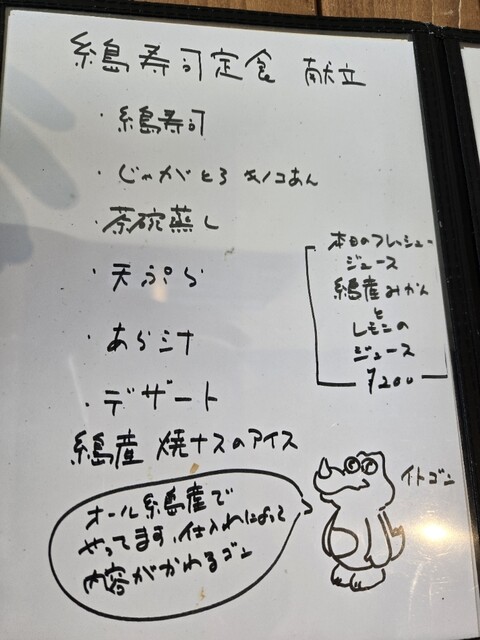 糸島寿司定食 献立
・糸島寿司
・じゃがとろ キノコあん
・茶碗蒸し
・天ぷら
・あら汁
・デザート
糸島産 焼ナスのアイス
本日のフレッシュー
ジュース
糸島産みかん
と
レモンの
ジュース
¥200
オール糸島産で
やってます、仕入れによって
内容がかわるゴン
イトゴン